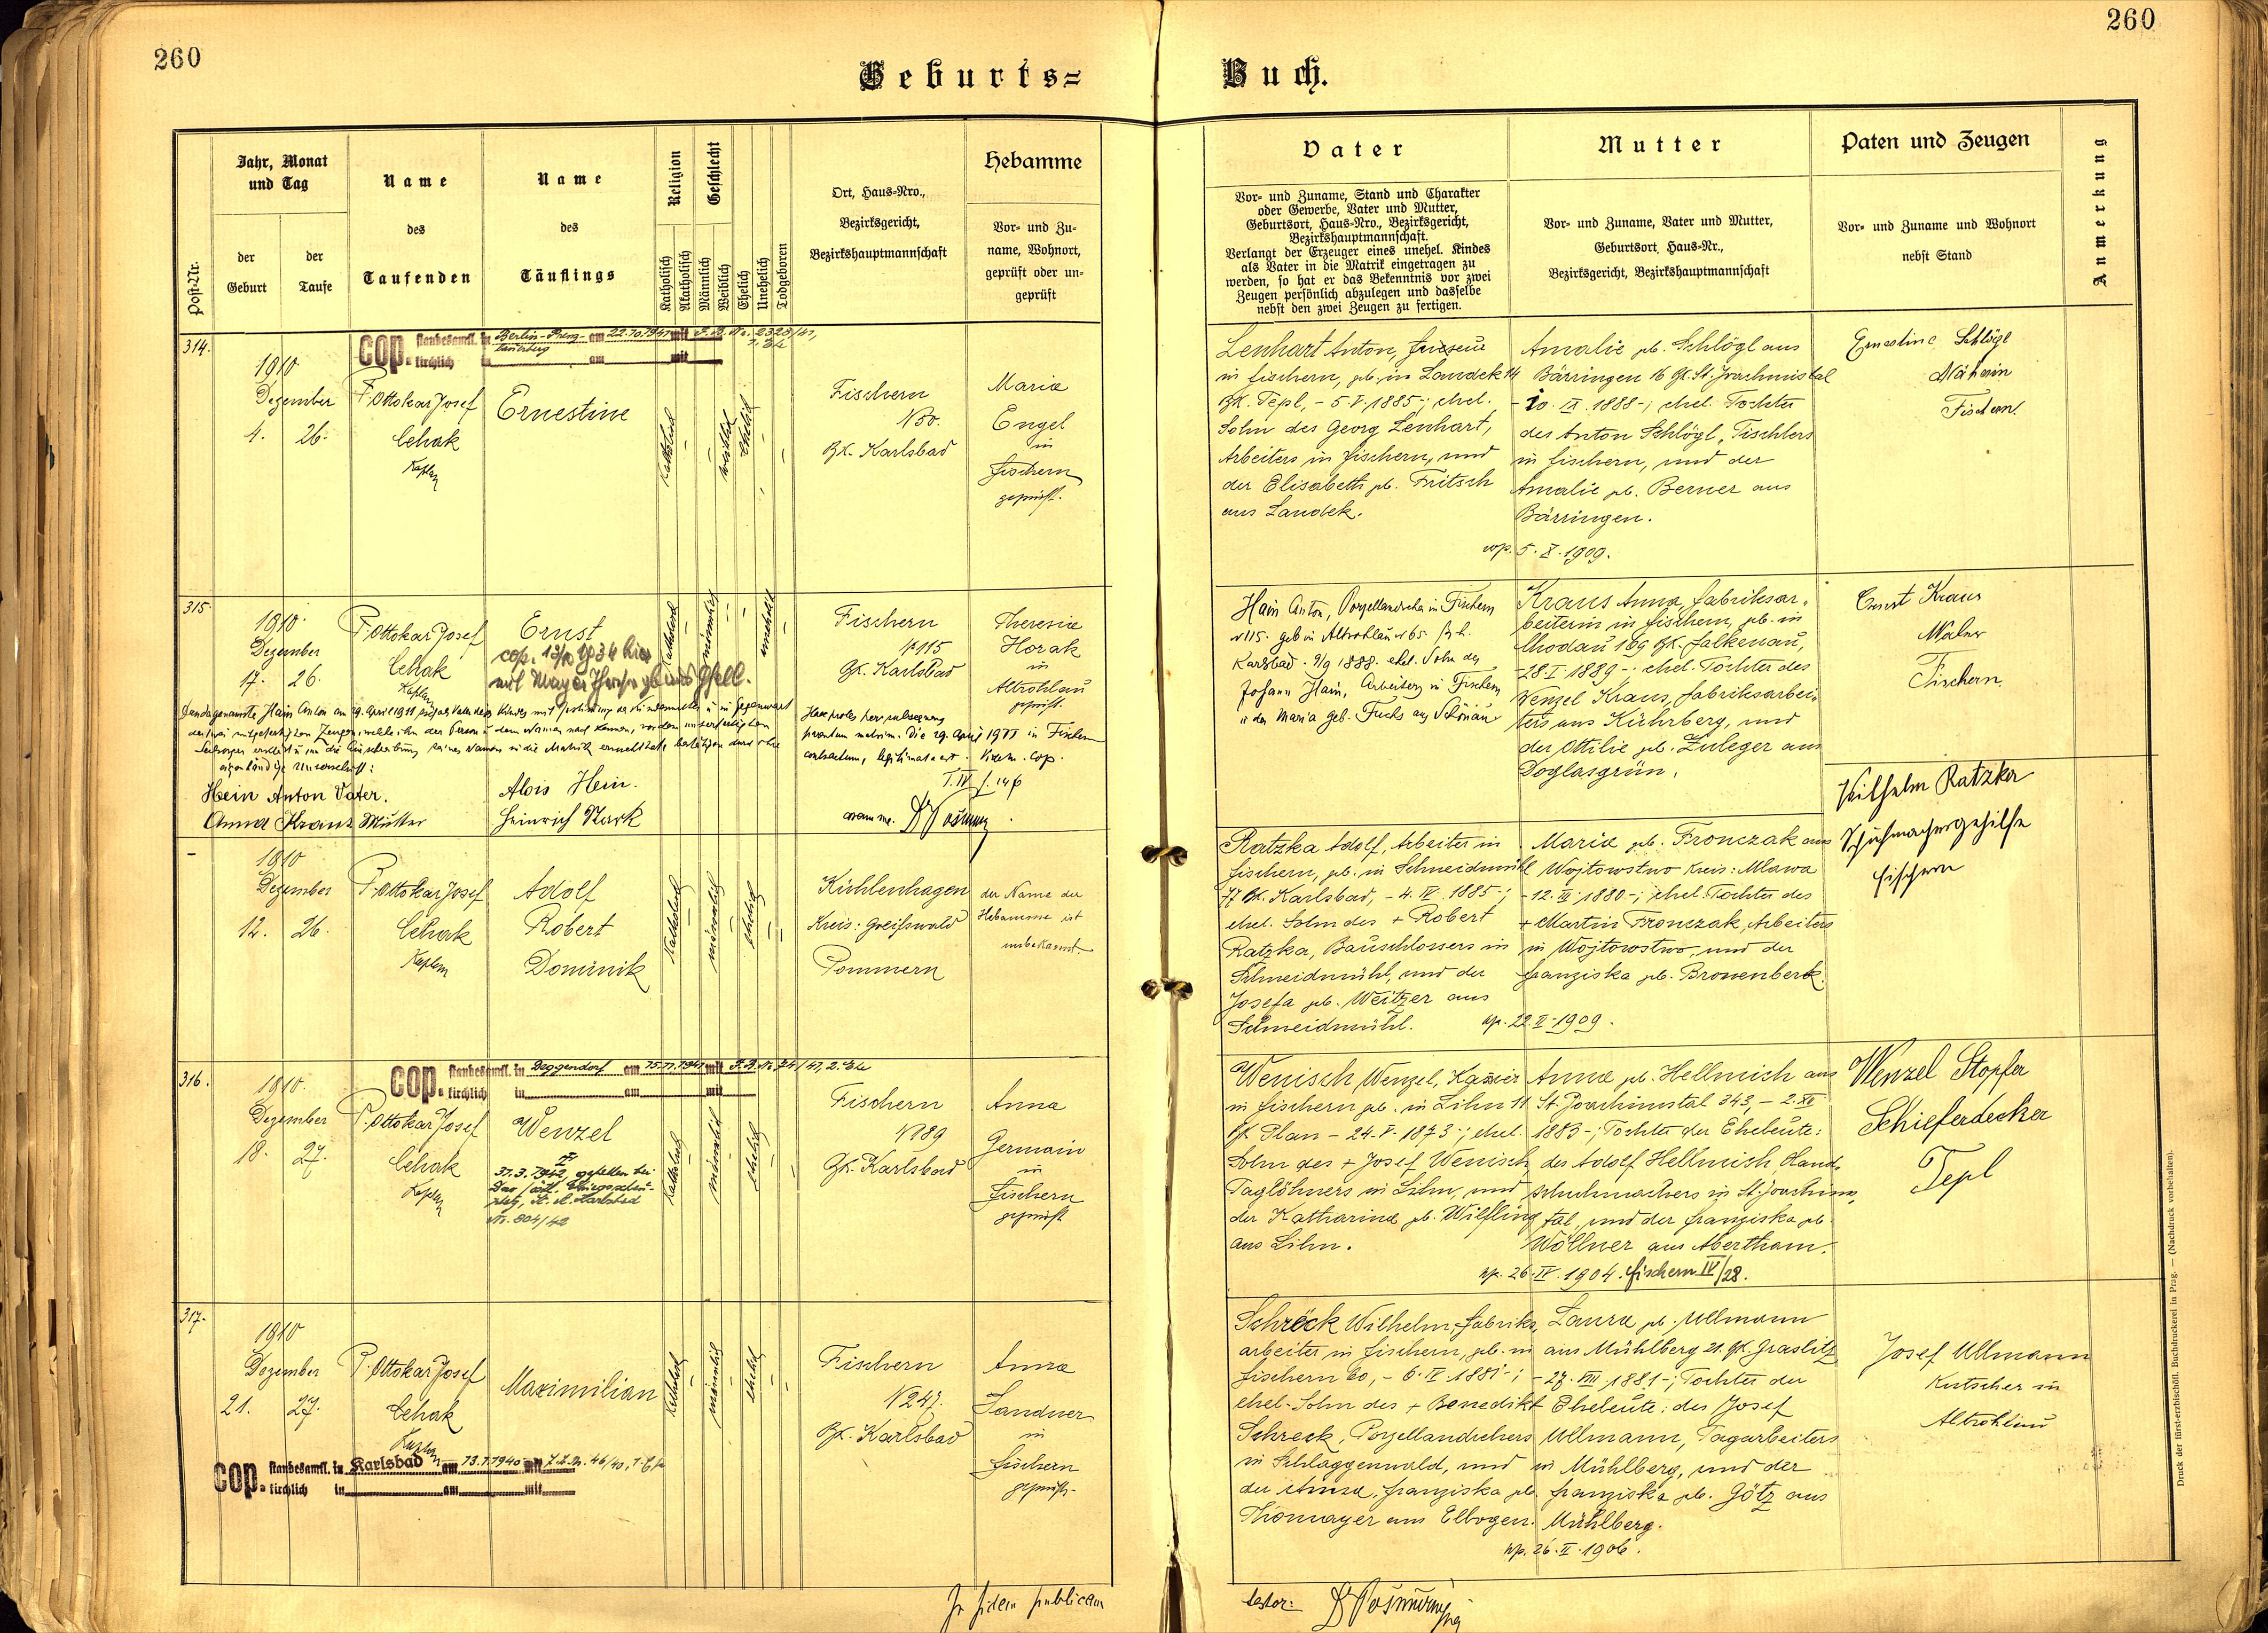 260
260
Geburts=
Buch.
Post-Nr.
Jahr, Monat
und Tag
der
Geburt
der
Taufe
Name
des
Taufenden
Name
des
Täuflings
Religion
Katholisch
Akatholisch
Geschlecht
Männlich
Weiblich
Ehelich
Unehelich
Todgeboren
Ort, Haus=Nro.,
Bezirksgericht,
Bezirkshauptmannschaft
Hebamme
Vor= und Zu=
name, Wohnort,
geprüft oder un=
geprüft
Vater
Vor= und Zuname, Stand und Charakter
oder Gewerbe, Vater und Mutter,
Geburtsort, Haus=Nro., Bezirksgericht,
Bezirkshauptmannschaft.
Verlangt der Erzeuger eines unehel. Kindes
als Vater in die Matrik eingetragen zu
werden, so hat er das Bekenntnis vor zwei
Zeugen persönlich abzulegen und dasselbe
nebst den zwei Zeugen zu fertigen.
Mutter
Vor= und Zuname, Vater und Mutter,
Geburtsort, Haus=Nr.,
Bezirksgericht, Bezirkshauptmannschaft
Paten und Zeugen
Vor= und Zuname und Wohnort
nebst Stand
Anmerkung
314.
cop. standesamtl. in Berlin-Prenz- am 22.10.1941 mit F.B. Nr. 2328/41,
lauerberg 1. Ehe
kirchlich in am mit
1910
Dezember
4. 26.
P. Ottokar Josef
Cehak
Kaplan
Ernestine
katholisch
weiblich
ehelich
Fischern
N 30.
Bk. Karlsbad
Maria
Engel
in
Fischern
geprüft.
Lenhart Anton, Friseur
in Fischern, geb. in Landek 14
Bk. Tepl, - 5.V.1885-; ehel.
Sohn des Georg Lenhart,
Arbeiters in Fischern, und
der Elisabeth geb. Fritsch
aus Landek.
Amalie geb. Schlögl aus
Bärringen 16 Gk. St. Joachimstal
- 20. IX. 1888-; ehel. Tochter
des Anton Schlögl, Tischlers
in Fischern, und der
Amalie geb. Berner aus
Bärringen.
cop. 5. X. 1909.
Ernestine Schlögl
Näherin
Fischern
315.
1910.
Dezember
17. 26.
P. Ottokar Josef
Cehak
Kaplan
Ernst
cop. 13/10 1934 hier
mit Mayer Therese
katholisch
männlich
unehelich
Fischern
N 115
Gk. Karlsbad
Theresia
Horak
in
Altrohlau
geprüft.
Hain Anton, Porzellandreher in Fischern
N 115. geb in Altrohlau N 65. Bk.
Karlsbad. 9/9 1888. ehel. Sohn des
Johann Hain, Arbeiters in Fischern
u der Maria geb. Fuchs aus Schönau
Kraus Anna, Fabriksar-
beiterin in Fischern, geb. in
Chodau 189 Gk. Falkenau,
- 28.I.1889-; ehel. Tochter des
Wenzel Kraus, Fabriksarbei-
ters aus Kührberg, und
der Ottilie geb. Zuleger aus
Doglasgrün.
Ernst Kraus
Maler
Fischern
Hain Anton am 29. April 1911
eigenhändige Unterschrift:
Hein Anton Vater.
Anna Kraus Mutter
Alois Hein.
Heinrich Stark
Haec proles per subsequens
matrim. Die 29. April 1911 in Fischern
contractum, legitimata est. Videm. Cop.
T. IV f. 146
coram me.
1910
Dezember
12. 26.
P. Ottokar Josef
Cehak
Kaplan
Adolf
Robert
Dominik
katholisch
männlich
ehelich
Kühlenhagen
Kreis: Greifswald
Pommern
der Name der
Hebamme ist
unbekannt.
Ratzka Adolf, Arbeiter in
Fischern, geb. in Schneidmühl
77 Bk. Karlsbad, - 4. IV. 1885-;
ehel. Sohn des + Robert
Ratzka, Bauschlossers in
Schneidmühl, und der
Josefa geb. Weitzer aus
Schneidmühl.
Maria geb. Fronczak aus
Wojtowstwo Kreis: Mlawa
- 12. III. 1880-; ehel. Tochter des
+ Martin Fronczak, Arbeiters
in Wojtowstwo, und der
Franziska geb. Bronenberk.
cop. 22. II. 1909.
Wilhelm Ratzka
Schuhmachergehilfe
Fischern
316.
cop. standesamtl. in Deggendorf am 15.11.1941 mit F.B. Nr. 74/41, 2. Ehe
kirchlich in am mit
1910.
Dezember
18. 27.
P. Ottokar Josef
Cehak
Kaplan
Wenzel
31.3.1942 gefallen bei
St. A. Karlsbad
Nr. 804/42
katholisch
männlich
ehelich
Fischern
N 89
Gk. Karlsbad
Anna
Germain
in
Fischern
geprüft
Wenisch Wenzel, Kassier
in Fischern geb. in Lihn 11
Gk. Plan - 24. V. 1873-; ehel.
Sohn des + Josef Wenisch,
Taglöhners in Lihn, und
der Katharina geb. Wilfling
aus Lihn.
Anna geb. Hellmich aus
St. Joachimstal 343, - 2. XII
1883-; Tochter der Eheleute:
des Adolf Hellmich, Hand-
schuhmachers in St. Joachims-
tal, und der Franziska geb.
Wöllner aus Abertham.
cop. 26. IV. 1904. Fischern IV/28.
Wenzel Stopfer
Schieferdecker
Tepl
317.
1910
Dezember
21. 27.
P. Ottokar Josef
Cehak
Kaplan
Maximilian
katholisch
männlich
ehelich
Fischern
N 247.
Bk. Karlsbad
Anna
Sandner
in
Fischern
geprüft.
cop. standesamtl. in Karlsbad am 13.1.1940 mit F.B. Nr. 46/40, 1. Ehe
kirchlich in am mit
Schreck Wilhelm, Fabriks-
arbeiter in Fischern, geb. in
Fischern 60, - 6. IV. 1881-;
ehel. Sohn des + Benedikt
Schreck, Porzellandrehers
in Schlaggenwald, und
der Anna Franziska geb.
Thomayer aus Elbogen.
Laura geb. Ullmann
aus Mühlberg 21. Gk. Graslitz
- 27. VIII. 1881-; Tochter der
Eheleute: des Josef
Ullmann, Tagarbeiters
in Mühlberg, und der
Franziska geb. Götz aus
Mühlberg.
cop. 26. II. 1906.
Josef Ullmann
Kutscher in
Altrohlau
In fidem publicam
testor:
Druck der fürst-erzbischöfl. Buchdruckerei in Prag. — (Nachdruck vorbehalten).